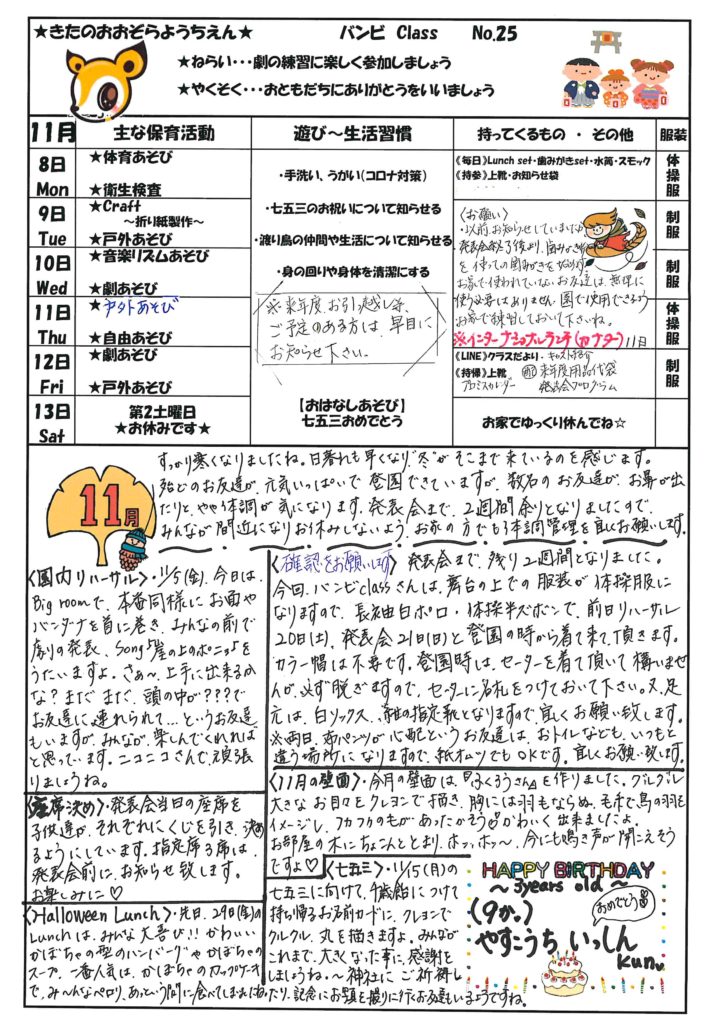 ★きたのおおぞらようちえん★ バンビ Class No.25
★ねらい・・・劇の練習に楽しく参加しましょう
★やくそく・・・おともだちにありがとうをいいましょう
11月 主な保育活動 遊び～生活習慣 持ってくるもの ・ その他 服装
8日 Mon
★体育あそび
★衛生検査
9日 Tue
★Craft
～折り紙製作～
★戸外あそび
10日 Wed
★音楽リズムあそび
★劇あそび
11日 Thu
★戸外あそび
★自由あそび
12日 Fri
★劇あそび
★戸外あそび
13日 Sat
第2土曜日
★お休みです★
・手洗い、うがい(コロナ対策)
・七五三のお祝いについて知らせる
・渡り鳥の仲間や生活について知らせる
・身の回りや身体を清潔にする
※来年度、お引っ越し等、
ご予定のある方は、早目に
お知らせ下さい。
【おはなしあそび】
七五三おめでとう
《毎日》Lunch set・歯みがきset・水筒・スモック
《持参》上靴・お知らせ袋
〈お願い〉
・以前、お知らせしていましたが
発表会終了後より、歯みがき粉
を使っての歯みがきを始めます。
お家で使われていないお友達は、無理に
使う必要はありません。園で使用できるよう
お家で練習しておいて下さいね。
※インターナショナルランチ(カナダ) 11日
《LINE》クラスだより・キャスト紹介
《持帰》上靴 来年度用品代袋
プロミスカレンダー 発表会プログラム
お家でゆっくり休んでね☆
体操服
制服
制服
体操服
制服
11月
すっかり寒くなりましたね。日暮れも早くなり"冬"がそこまで来ているのを感じます。
殆どのお友達が、元気いっぱいで登園できていますが、数名のお友達が、お鼻が出
たりと、やや体調が気になります。発表会まで、2週間余りとなりましたので、
みんなが間近になりお休みしないよう、お家の方でも体調管理を宜しくお願いします。
〈園内リハーサル〉・11/5(金)、今日は、
Big roomで、本番同様にお面や
バンダナを首に巻き、みんなの前で
劇の発表、Song『崖の上のポニョ』を
うたいますよ。さぁ～、上手に出来るか
な?まだまだ、頭の中が???で
お友達に連れられて…というお友達
もいますが、みんなが、楽しんでくれれば
と思っています。ニコニコさんで頑張
りましょうね。
〈確認をお願いします〉 発表会まで、残り2週間となりました。
今回、バンビclassさんは、舞台の上での服装が体操服に
なりますので、長袖白ポロ・体操半ズボンで、前日リハーサル
20日(土)、発表会21日(日)と登園の時から着て来て頂きます。
カラー帽は不要です。登園時は、セーターを着て頂いて構いませ
んが、必ず脱ぎますので、セーターに名札をつけておいて下さい。又、足
元は、白ソックス、の指定靴となりますので、宜しくお願い致します。
※両日、布パンツが心配というお友達は、おトイレなども、いつもと
違う場所になりますので、紙オムツでもOKです。宜しくお願い致します。
〈座席決め〉・発表会当日の座席を
子供達が、それぞれにくじを引き、決め
るようにしています。指定席3席は、
発表会前に、お知らせ致します。
お楽しみに♡
〈11月の壁面〉・今月の壁面は『ふくろうさん』を作りました。グルグル
大きなお目々をクレヨンで描き、胸には羽もならぬ、毛糸で鳥の羽を
イメージし、フカフカのものがあったかそう♡かわいく出来ましたよ。
お部屋の木にちょこんととまり、ホッホッホ～、今にも鳴き声が聞こえそう
ですよ♡
〈Halloween Lunch〉・先日、29日(金)の
Lunchは、みんな大喜び!!かわいい
かぼちゃの型のハンバーグやかぼちゃの
スープ、一番人気は、かぼちゃのカップケーキ
で、み～んなペロリ、あっという間に食べてしまいましたね。
〈七五三〉・11/15(月)の
七五三に向けて、千歳飴につけて
持ち帰るお名前カードに、クレヨンで
クルクル、丸を描きますよ。みんなが
これまで、大きくなった事に、感謝を
しましょうね。～神社にご祈祷し
たり、記念にお写真を撮りに行くお友達もいるようですね。
HAPPY BiRTHDAY
～3years old～
(9か。)
やすこうち いっしん
kun。
おめでとう